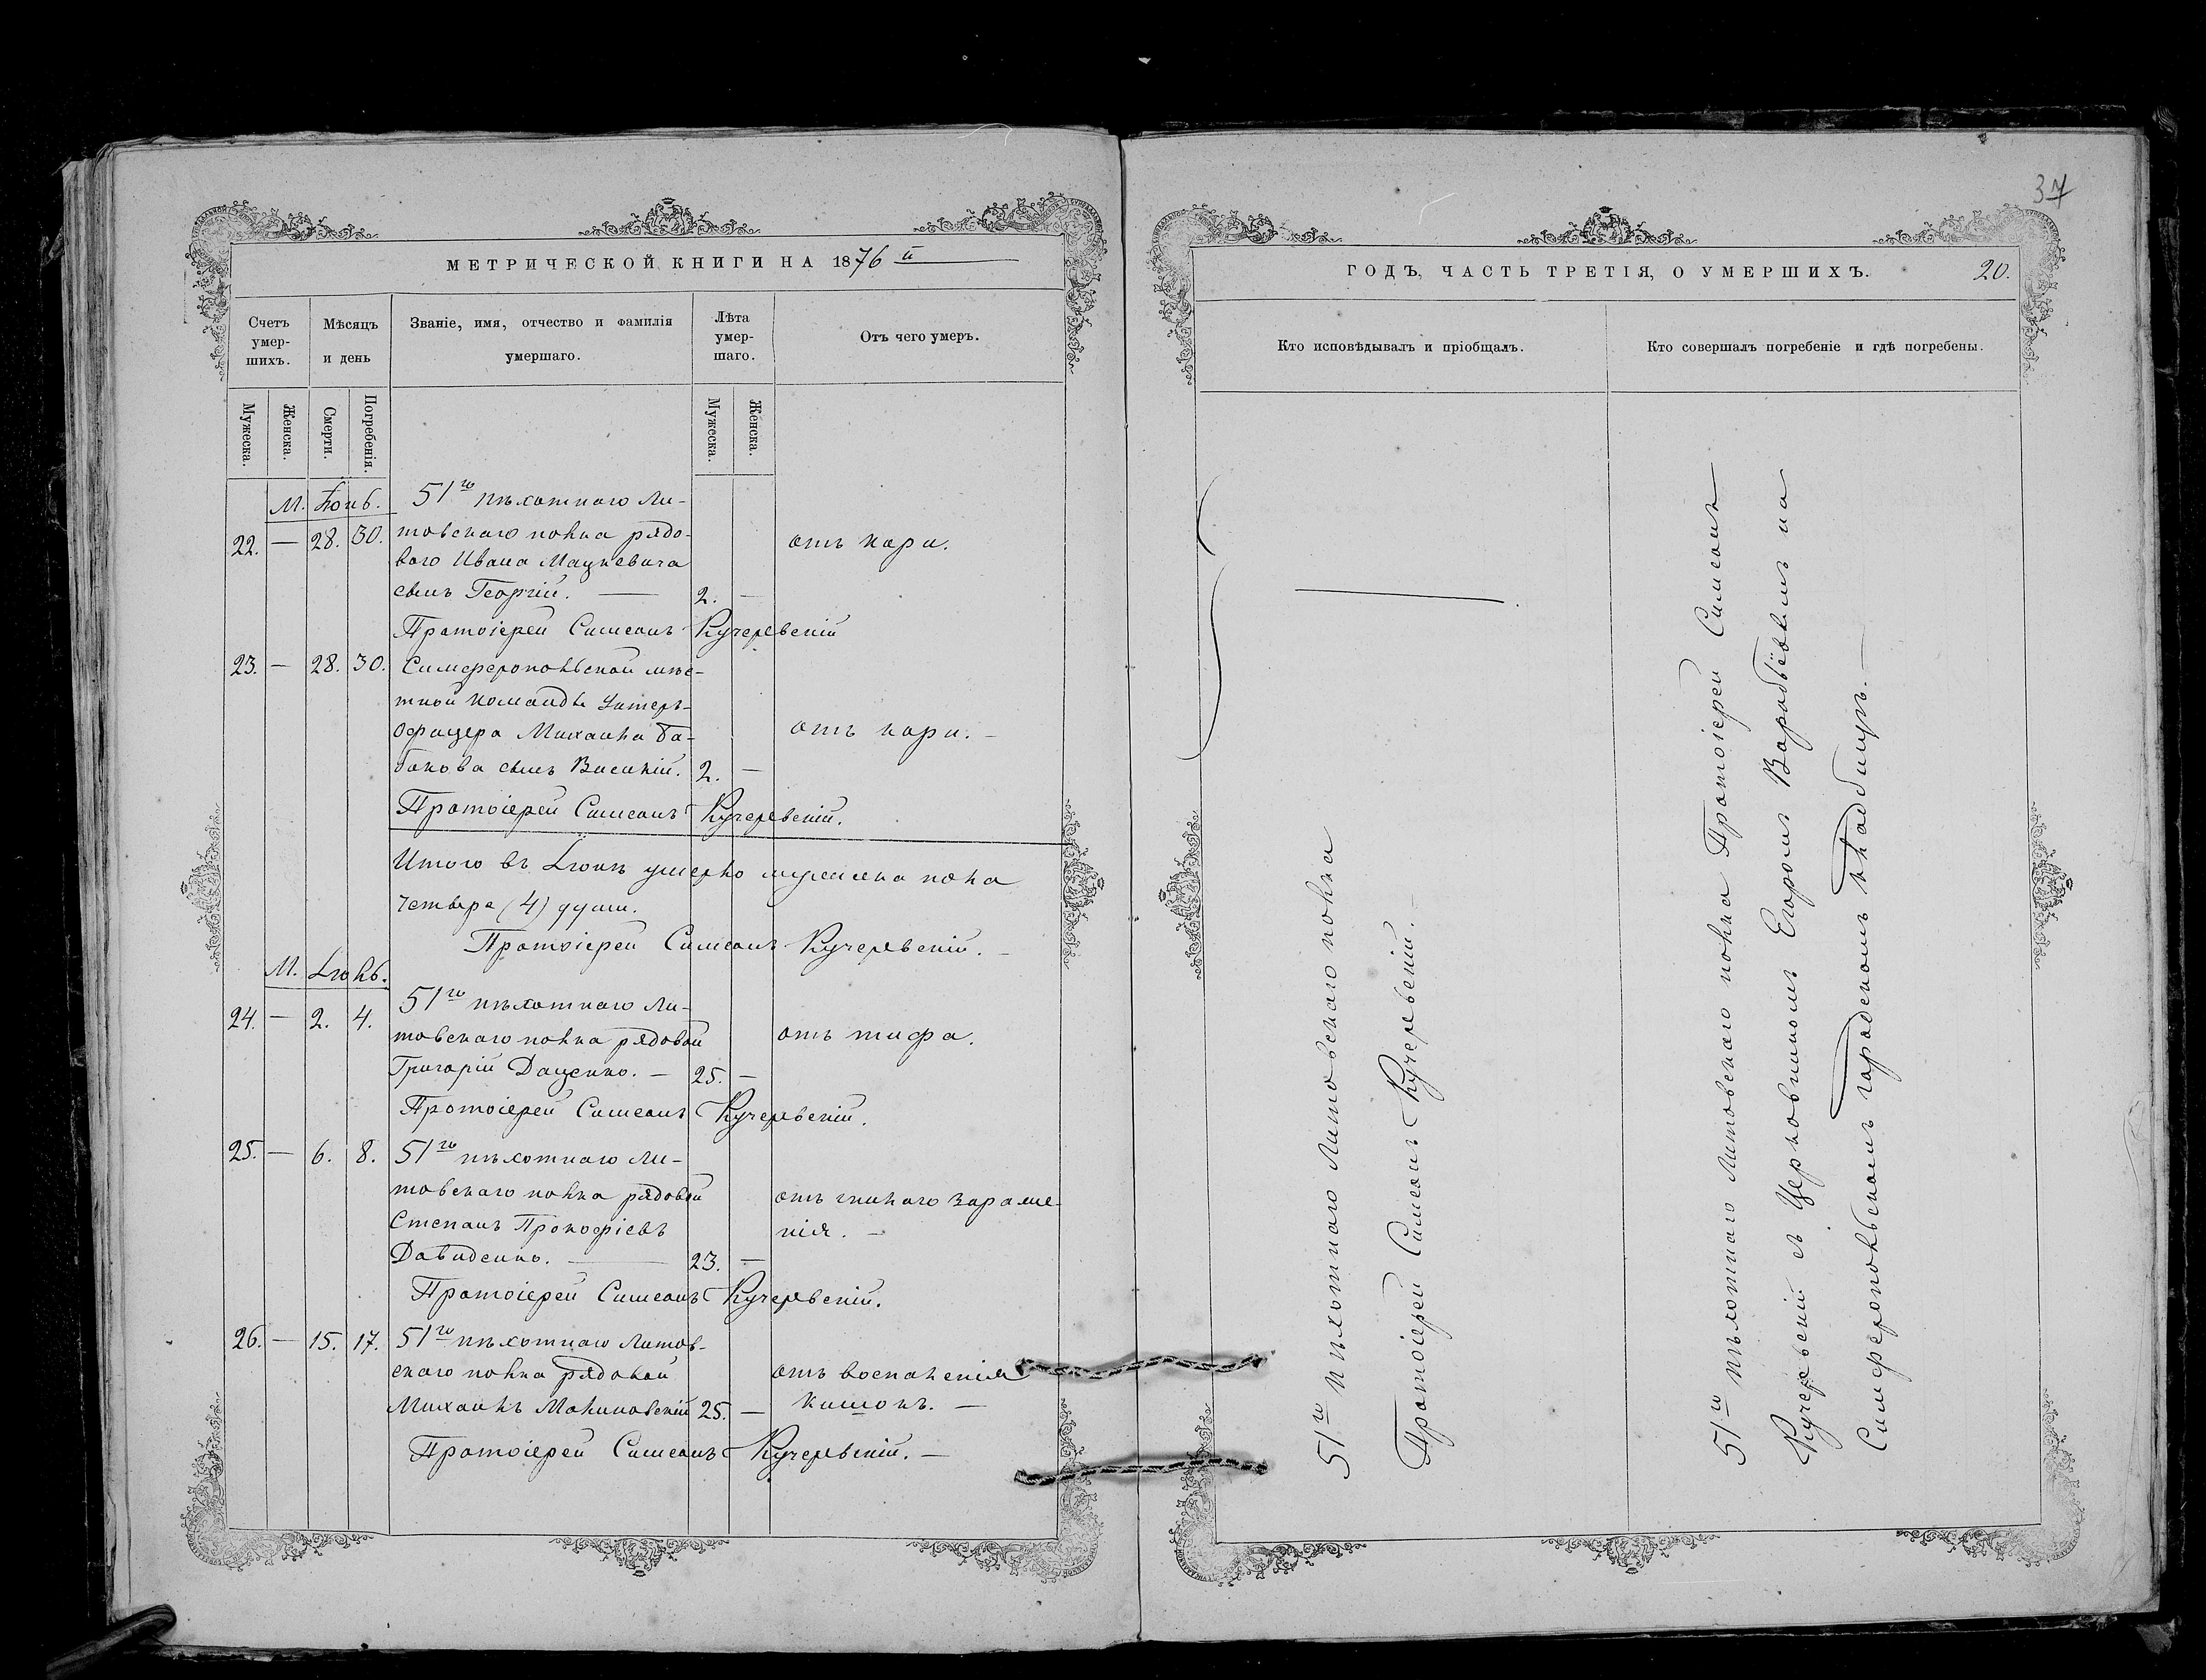 МЕТРИЧЕСКОЙ КНИГИ НА 1876 й
Счетъ умер-шихъ.
Мѣсяцъ и день
Званіе, имя, отчество и фамилія умершаго.
Лѣта умер-шаго.
Отъ чего умеръ.
Мужеска.
Женска.
Смерти.
Погребенія.
Мужеска.
Женска.
М. Іюнь. 51го пѣхотнаго Ли-
22. — 28. 30. товскаго полка рядо-
ваго Ивана Мацкевича отъ кори.
сынъ Георгій. — 2. —
Протоіерей Симеонъ Кучеревскій
23. — 28. 30. Симферопольской мѣс-
тной команды Унтеръ-
Офицера Михаила Ба- отъ кори. —
бакова сынъ Василій. 2. —
Протоіерей Симеонъ Кучеревскій.
Итого въ Іюнѣ умерло мужеска пола
четыре (4) души.
Протоіерей Симеонъ Кучеревскій. —
М. Іюль.
51го пѣхотнаго Ли-
24. — 2. 4. товскаго полка рядовой отъ тифа.
Григорій Даценко. — 25. —
Протоіерей Симеонъ Кучеревскій.
25. — 6. 8. 51го пѣхотнаго Ли-
товскаго полка рядовой отъ гнилаго зараже-
Степанъ Прокофіевъ нія. —
Давиденко. — 23. —
Протоіерей Симеонъ Кучеревскій.
26. — 15. 17. 51го пѣхотнаго Литов-
скаго полка рядовой отъ воспаленія
Михаилъ Малиновскій 25. — кишокъ. —
Протоіерей Симеонъ Кучеревскій. —
37
ГОДЪ, ЧАСТЬ ТРЕТІЯ, О УМЕРШИХЪ. 20.
Кто исповѣдывалъ и пріобщалъ.
Кто совершалъ погребеніе и гдѣ погребены.
51го пѣхотнаго Литовскаго полка
Протоіерей Симеонъ Кучеревскій. —
51го пѣхотнаго Литовскаго полка Протоіерей Симеонъ
Кучеревскій съ Церковникомъ Егоромъ Воробьёвымъ на
Симферопольскомъ городскомъ кладбищѣ. —